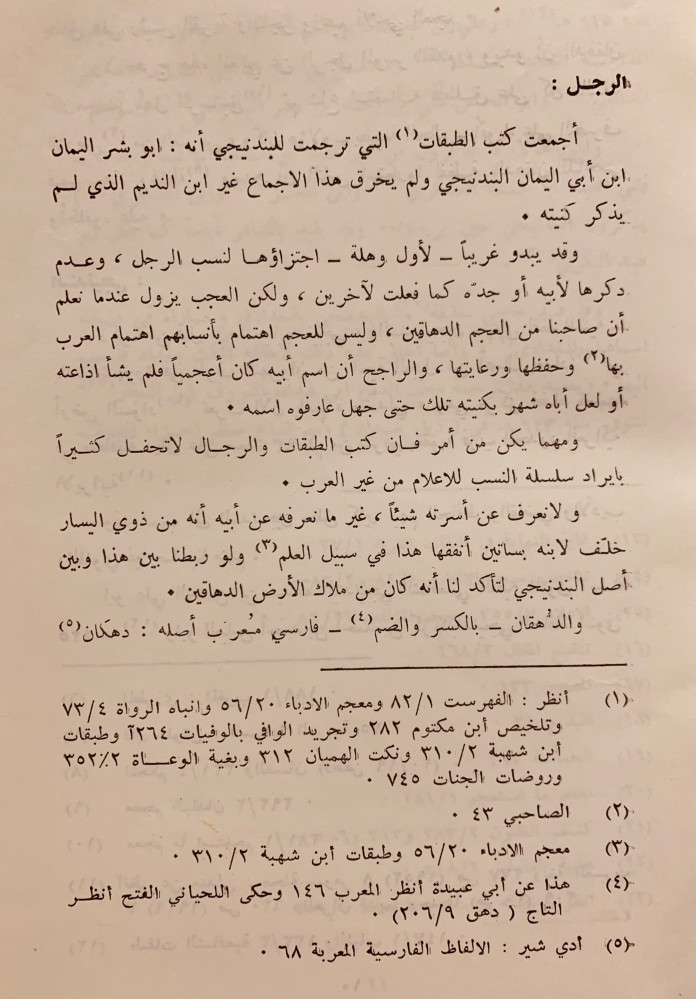 الرجـل :
أجمعت كتب الطبقات(١) التي ترجمت للبندنيجي أنه : ابو بشر اليمان
ابن أبي اليمان البندنيجي ولم يخرق هذا الاجماع غير ابن النديم الذي لـم
يذكر كنيته .
وقد يبدو غريباً ــ لأول وهلة ــ اجتزاؤهـا لنسب الرجل ، وعـدم
دكرها لأبيه أو جدّه كما فعلت لآخرين ، ولكن العجب يزول عندما نعلم
أن صاحبنا من العجم الدهاقين ، وليس للعجم اهتمام بأنسابهم اهتمام العرب
بها(٢) وحفظها ورعايتها ، والراجح أن اسم أبيه كان أعجمياً فلم يشأ اذاعته
أو لعل أباه شهر بكنيته تلك حتى جهل عارفوه اسمه .
ومهما يكن من أمر فـان كتب الطبقات والرجـال لاتحفـل كثـيراً
بايراد سلسلة النسب للاعلام من غير العرب .
و لانعرف عن أسرته شيئاً ، غير ما نعرفه عن أبيه أنه من ذوي اليسار
خلـّف لابنه بساتين أنفقها هذا في سبيل العلم(٣) ولو ربطنا بين هذا وبين
أصل البندنيجي لتأكد لنا أنه كان من ملاك الأرض الدهاقين .
والدهقان ــ بالكسر والضم(٤) ــ فارسي مُعرب أصله : دهكان(٥)
(١) أنظر : الفهرست ٨٢/١ ومعجم الادباء ٥٦/٢٠ وانباه الرواة ٧٣/٤
وتلخيص أبن مكتوم ٢٨٢ وتجريد الوافي بالوفيات ٢٦٤آ وطبقات
أبن شهبة ٣١٠/٢ ونكت الهميان ٣١٢ وبغية الوعـــاة ٣٥٢٪٢
وروضات الجنات ٧٤٥ .
(٢) الصاحبي ٤٣ .
(٣) معجم الادباء ٥٦/٢٠ وطبقات أبن شهبة ٣١٠/٢ .
(٤) هذا عن أبي عبيدة أنظر المعرب ١٤٦ وحكى اللحياني الفتح أنظـر
التاج ( دهق ٢٠٦/٩) .
(٥) أدي شير : الالفاظ الفارسية المعربة ٦٨ .